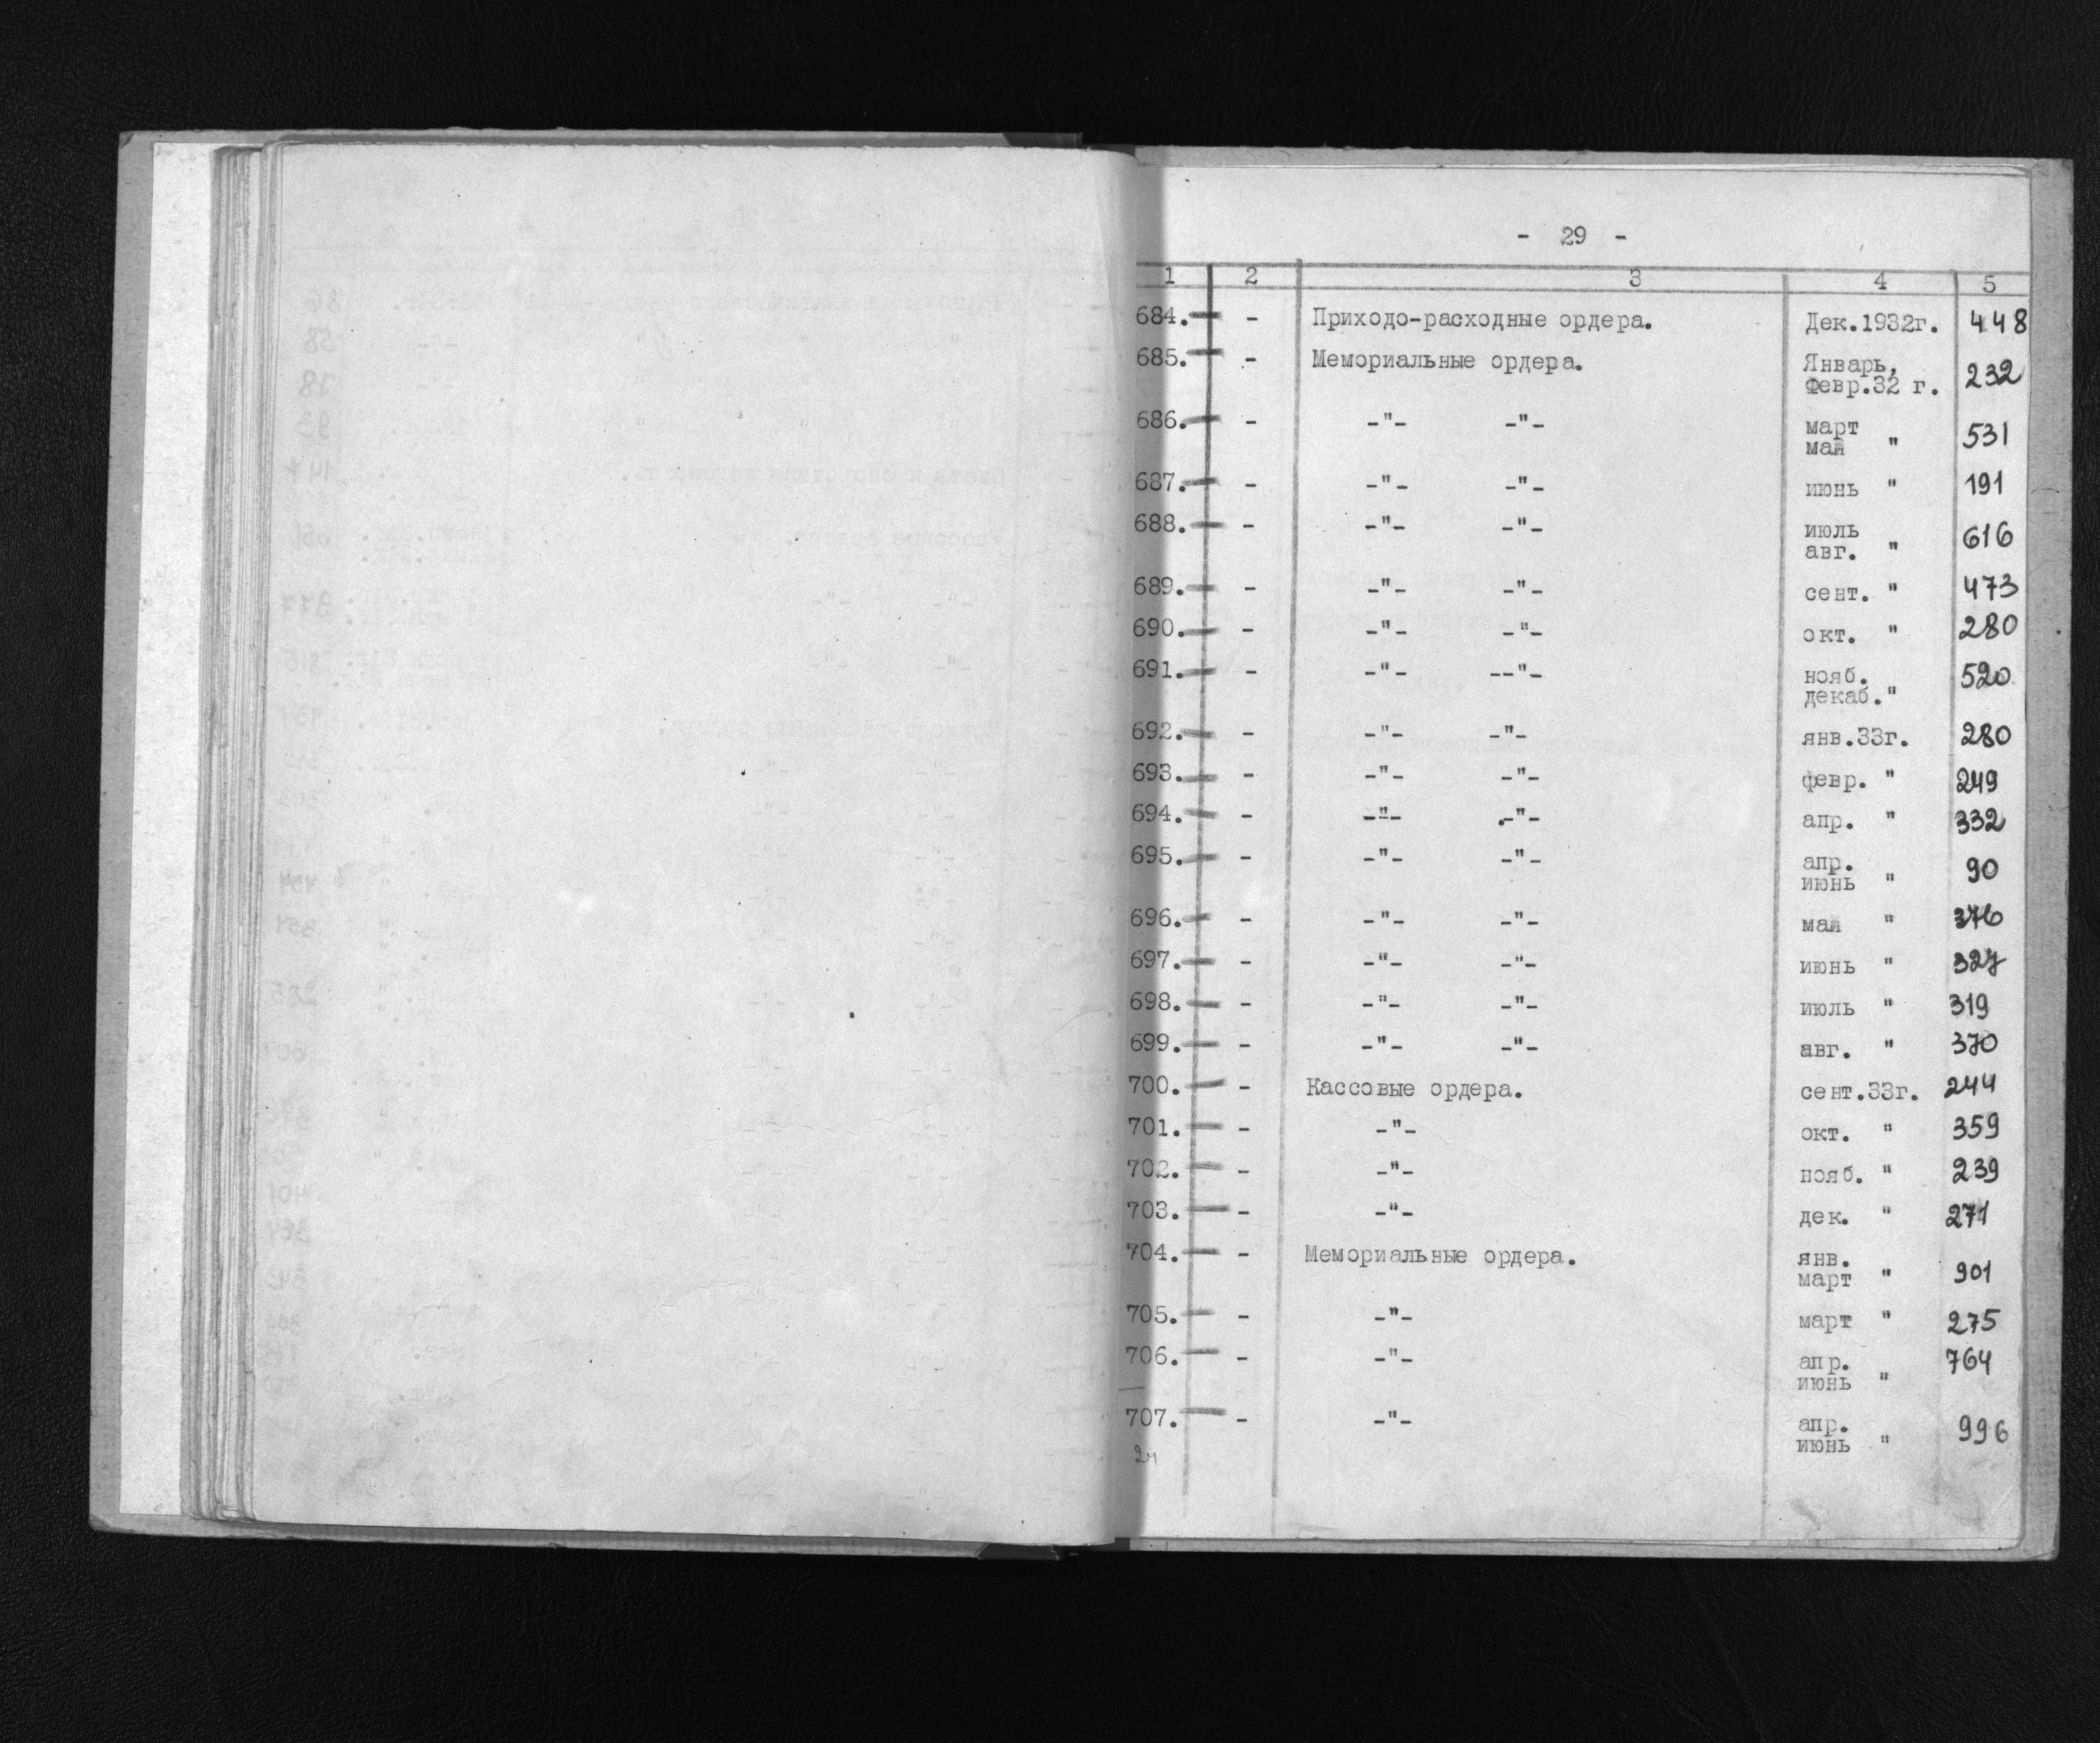 - 29 -
1 2 3 4 5
684. - Приходо-расходные ордера. Дек.1932г. 448
685. - Мемориальные ордера. Январь,
февр.32 г. 232
686. - -"- -"- март
май " 531
687. - -"- -"- июнь " 191
688. - -"- -"- июль
авг. " 616
689. - -"- -"- сент. " 473
690. - -"- -"- окт. " 280
691. - -"- --"- нояб.
декаб." 520
692. - -"- -"- янв.33г. 280
693. - -"- -"- февр. " 249
694. - -"- -"- апр. " 332
695. - -"- -"- апр.
июнь " 90
696. - -"- -"- май " 376
697. - -"- -"- июнь " 327
698. - -"- -"- июль " 319
699. - -"- -"- авг. " 370
700. - Кассовые ордера. сент.33г. 244
701. - -"- окт. " 359
702. - -"- нояб. " 239
703. - -"- дек. " 271
704. - Мемориальные ордера. янв.
март " 901
705. - -"- март " 275
706. - -"- апр. 764
июнь "
707. - -"- апр.
июнь " 996